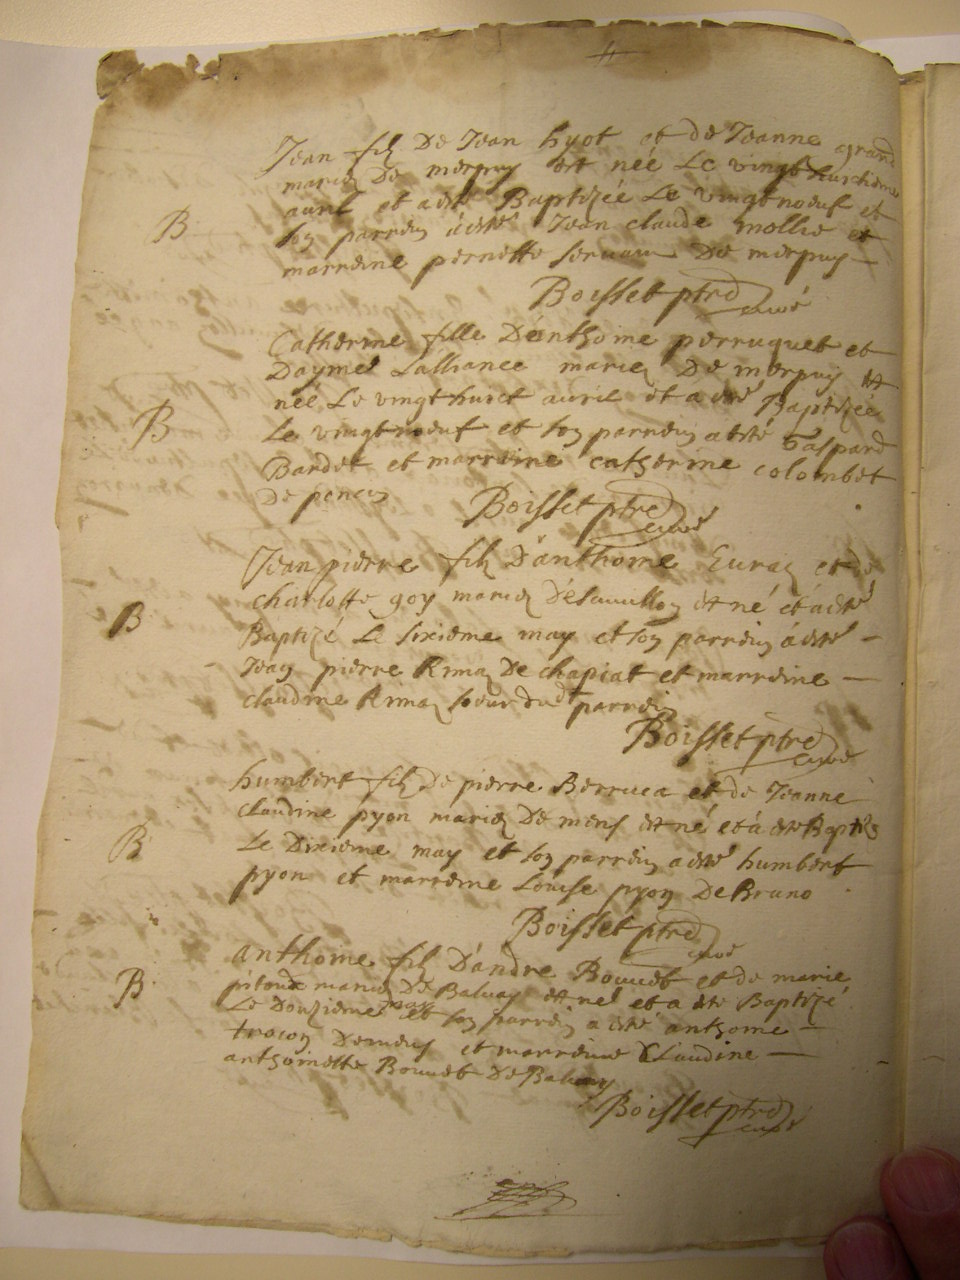 Jean filz De Jean hyot et de Jeanne grand
mariez De merpuy est néé Le vingt huictieme
avril et a esté Baptizéé Le vingt noeuf et
B son parrein à esté Jean claude mollie et
marreine pernette servau De merpuy
Boisset ptre curé
Catherine fille D'anthoine perruquet et
Daymeé Lalliance mariez De merpuy est
néé Le vingt huict avril et a esté Baptizéé
B Le vingt noeuf et son parrein a esté Gaspard
Bardet et marreine catherine colombet
De poncin
Boisset ptre curé
Jean pierre filz D'anthoine Euraz et de
charlotte goy mariez né et à esté
B Baptizé Le sixieme may et son parrein à esté
Jean pierre Rma De chapiat et marreine
claudine Rma soeur dudt parrein
Boisset ptre curé
humbert filz De pierre Berruea et de Jeanne
claudine pyon mariez De mens est né et à esté Baptizé
B Le Dixieme may et son parrein a esté humbert
pyon et marreine Louise pyon De Bruno
Boisset ptre curé
anthoine filz D'andre Bouvet et de marie
B pitoux mariez De Balvay est né et a esté Baptizé
Le Douzieme may et son parrein a esté anthoine
trocon Demens et marreine Claudine
anthoinette Bouvet De Balvay
Boisset ptre curé